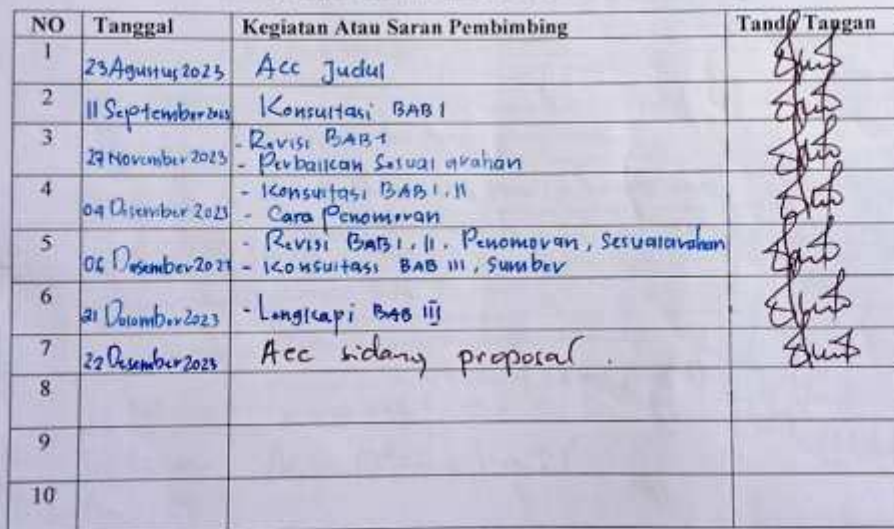 NO Tanggal Kegiatan Atau Saran Pembimbing Tanda Tangan
1 23 Agustus 2023 Acc Judul
2 11 September 2023 Konsultasi BAB I
3 27 November 2023 - Revisi BAB 1
- Perbaikan Sesuai arahan
4 04 Desember 2023 - Konsultasi BAB I, II
- Cara Penomoran
5 06 Desember 2023 - Revisi BAB I, II, Penomoran, Sesuai arahan
- Konsultasi BAB III, Sumber
6 21 Desember 2023 - Lengkapi BAB III
7 22 Desember 2023 Acc sidang proposal.
8
9
10